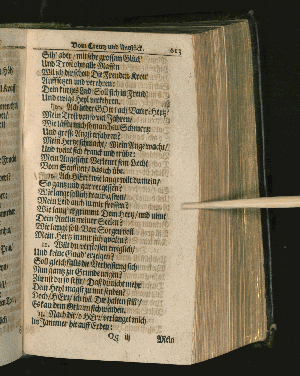 Vom Creutz und Anfechst. 613
Sih/ aber/ mit sehr grossem Glück/
Und Trost ohn alle Massen
Wil ich dir schon Die Freuden Kron
Auffsetzen und verehren:
Dein kurtzes Leid Soll sich in Freud/
Und ewig Heyl verkehren.
Ach lieber GOtt/ ach Vater-Hertz/
Mein Trost von so viel Jahren/
Wie läst du mich so manchen Schmertz
Und grosse Angst erfahren?
Mein Hertze schmacht/ Mein Auge wacht/
Und weint sich kranck und trübe:
Mein Angesicht Verleurt sein Liecht
Vom Seuffzen/ das ich übe.
Ach HErr/ wie lange wilt du mein/
So gantz und gar vergessen?
Wie lange soll ich traurig seyn/
Mein Leid auch in mich fressen?
Wie lang ergrimmt Dein Hertz/ und nimt
Dein Antlitz meiner Seelen?
Wie lange soll Von Sorgen voll
Mein Hertz in mir sich quälen?
Wilt du verstossen ewiglich/
Und keine Gnad' erzeigen?
Soll gleichfalls die Verheissung sich
Nun gantz zu Grunde neigen?
Zürnst du so sehr/ Daß du nicht mehr
Dein Heyl magst zu mir senden?
Doch/ HErr/ ich wil Dir halten still/
Es kan dein Hülff
Nach dir/ o HErr/ verlanget mich
Im Jammer hie auff Erden:
Qq iij Mein